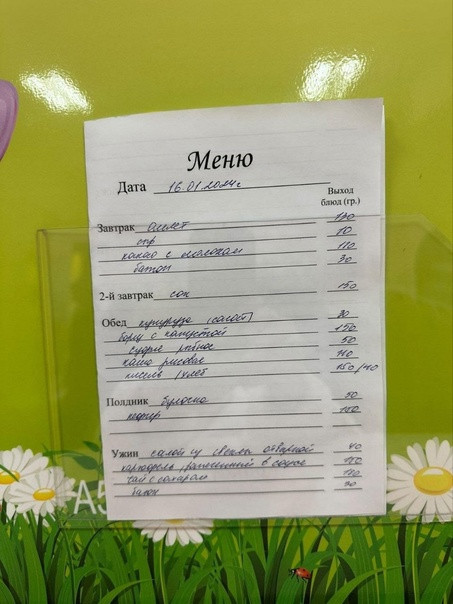 Меню
Дата 16.01.2024г
Выход
блюд (гр.)
Завтрак Омлет
10
какао с молоком 110
батон 30
2-й завтрак сок 150
Обед кукуруза (салат) 30
борщ с капустой 150
суфле рыбное 50
каша рисовая 110
кисель /хлеб 150/40
Полдник булочка 50
кефир 150
Ужин салат из свеклы отварной 40
картофель, в соусе
чай с сахаром
батон 30
А5